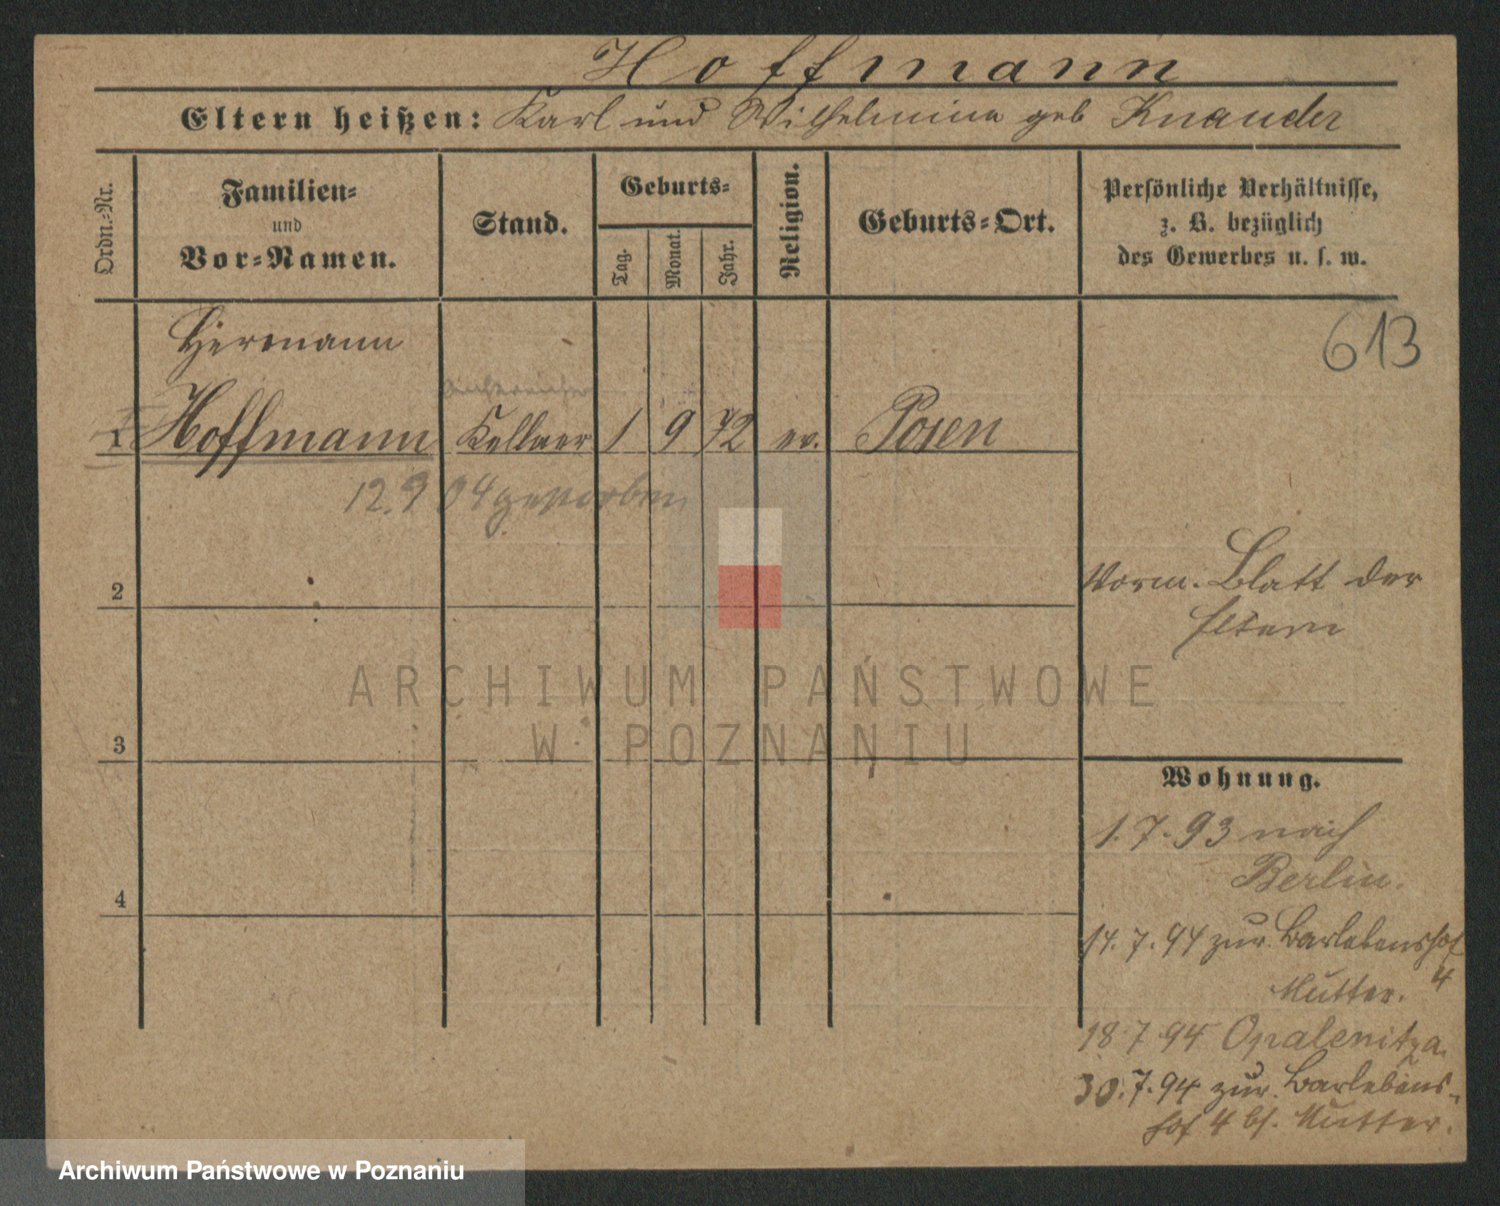 Hoffmann
Eltern heißen: Karl und Wilhelmina geb Knauder
Ordn.-Nr.
Familien-
und
Vor-Namen.
Stand.
Geburts-
Tag.
Monat.
Jahr.
Religion.
Geburts-Ort.
Persönliche Verhältnisse,
z. B. bezüglich
des Gewerbes u. s. w.
613
Hermann
1 Hoffmann Kellner 1 9 72 ev. Posen
12.9 04 gestorben
Vorm. Blatt der
Eltern
2
ARCHIWUM PAŃSTWOWE
W POZNANIU
3
Wohnung.
1.7.93 nach
Berlin.
4
14.7.94 zur. Barlebenshof
4
Mutter.
18 7 94 Opalenitza.
30.7.94 zur. Barlebens-
hof 4 bf. Mutter.
Archiwum Państwowe w Poznaniu